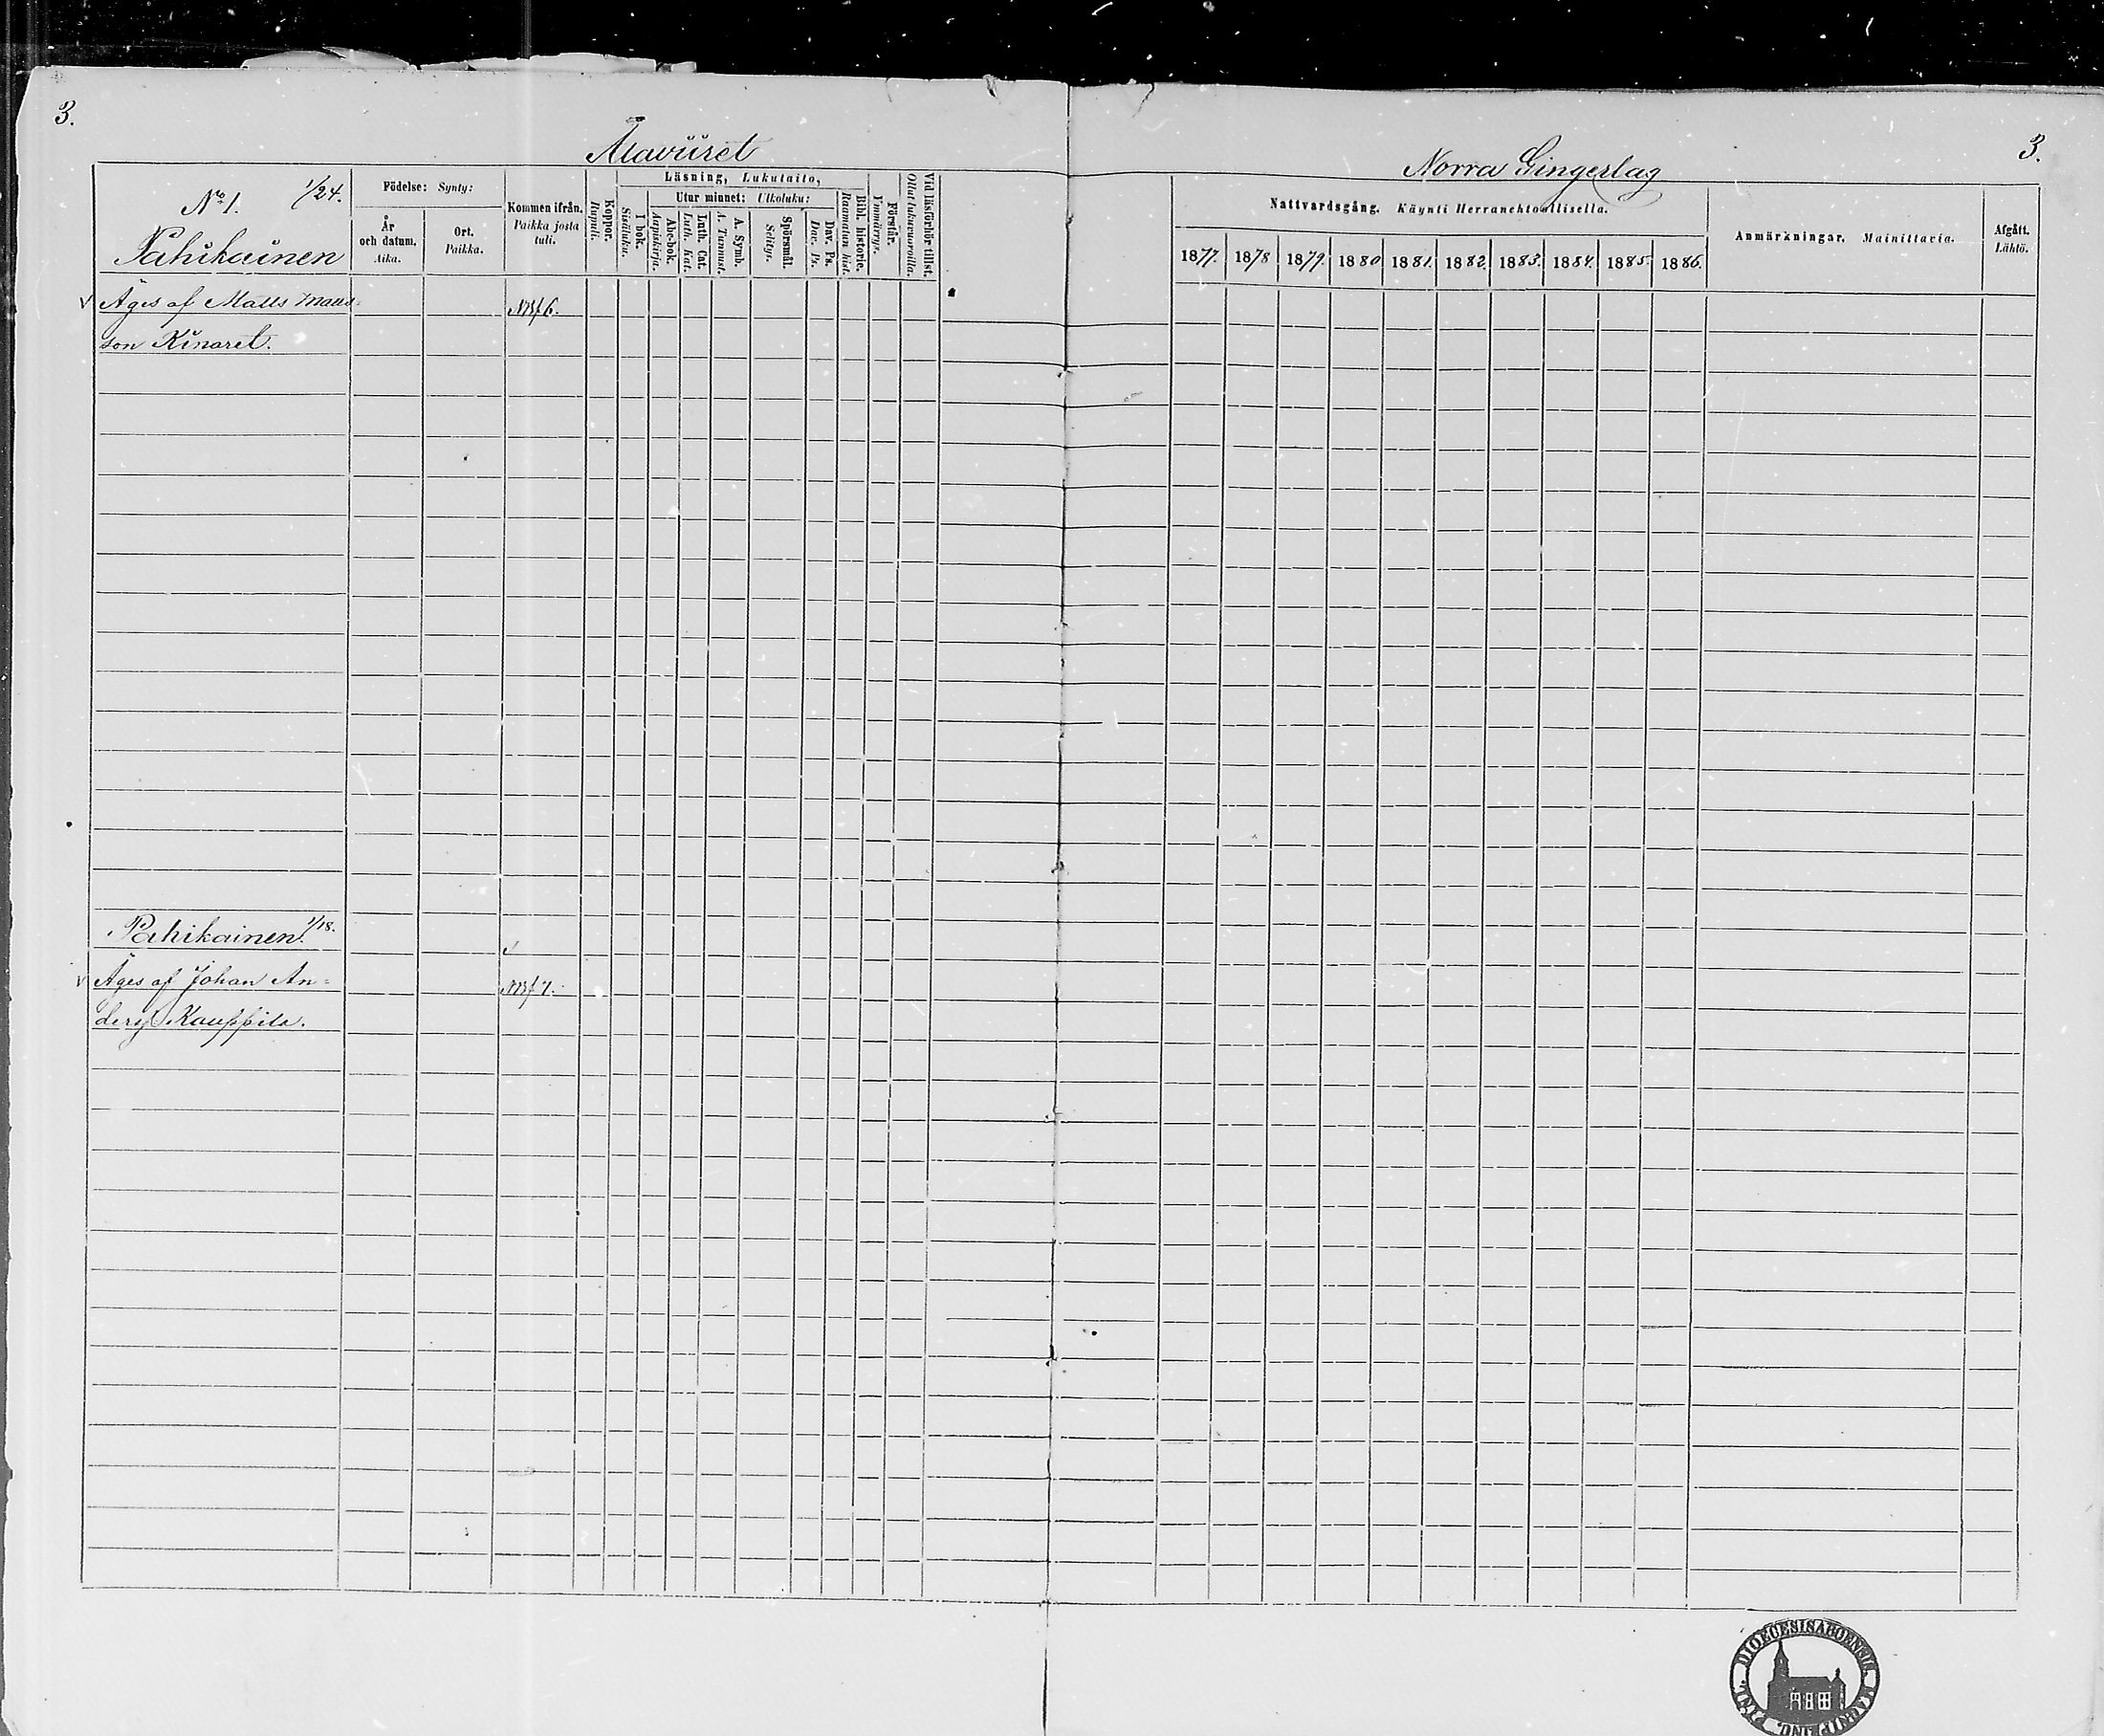 3.
Alaviiret
Norra Gingerlag
3.
No 1. 1/24.
Pahikainen
Födelse: Synty:
År och datum. Aika.
Ort. Paikka.
Kommen ifrån. Paikka josta tuli.
Koppor. Rupuli.
Läsning, Lukutaito,
I bok. Sisäluku.
Utur minnet: Ulkoluku:
Abc-bok. Aapiskirja.
Luth. Cat. Luth. Kat.
A. Symb. A. Tunnust.
Spörsmål. Selitys.
Dav. Ps. Dav. Ps.
Bibl. historie. Raamatun hist.
Förstår. Ymmärrys.
Vid läsförhör tillst. Ollut lukuvuoroilla.
Nattvardsgång. Käynti Herranehtoollisella.
1877. 1878 1879. 1880 1881. 1882. 1883. 1884. 1885. 1886.
Anmärkningar. Mainittavia.
Afgått. Lähtö.
v Äges af Matts Matts- 
son Kinaret.
Pahikainen. 1/18.
v Äges af Johan An=
ders Kauppila.
DIOECESIS ABOENSIS